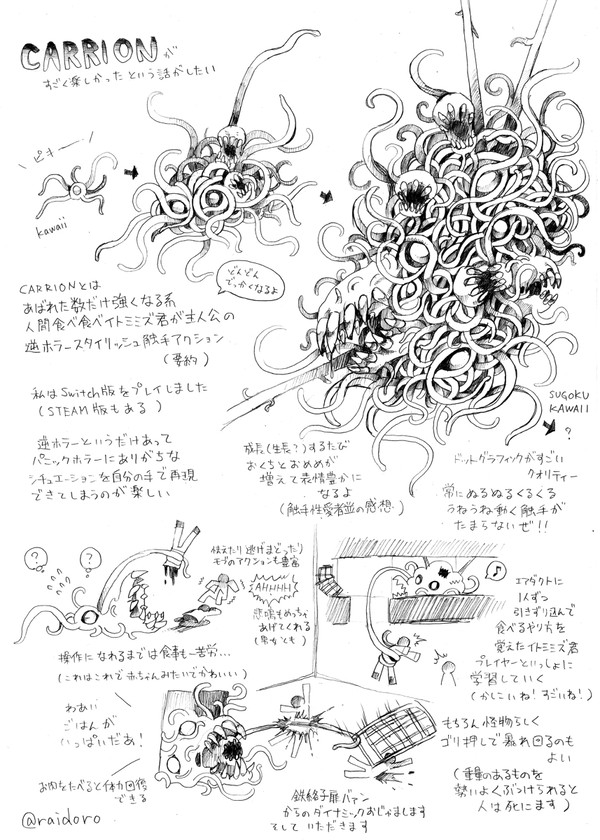 CARRIONが
すごく楽しかったという話がしたい
ピキーー
kawaii
どんどん
でっかくなるよ
CARRIONとは
あばれた数だけ強くなる系
人間食べ食べイトミミズ君が主人公の
逆ホラースタイリッシュ触手アクション
(要約)
私はSwitch版をプレイしました
(STEAM版もある)
逆ホラーというだけあって
パニックホラーにありがちな
シチュエーションを自分の手で再現
できてしまうのが楽しい
成長(生長?)するたび
おくちとおめめが
増えて表情豊かに
なるよ
(触手性愛者並の感想)
SUGOKU
KAWAII
?
ドットグラフィックがすごい
クオリティー
常にぬるぬるくるくる
うねうね動く触手が
たまらないぜ!!
?
?
怯えたり逃げまどったり
モブのアクションも豊富
AHHHH
悲鳴もめっちゃ
あげてくれる
(男女とも)
操作になれるまでは食事も一苦労…
(これはこれで赤ちゃんみたいでかわいい)
♪
エアダクトに
1人ずつ
引きずり込んで
食べるやり方を
覚えたイトミミズ君
プレイヤーといっしょに
学習していく
(かしこいね!すごいね!)
わあい
ごはんが
いっぱいだあ!
お肉をたべると体力回復
できる
鉄格子扉バァン
からのダイナミックおじゃまします
そして いただきます
もちろん怪物らしく
ゴリ押しで暴れ回るのも
よい
(重量のあるものを
勢いよくぶつけられると
人は死にます)
@raidoro